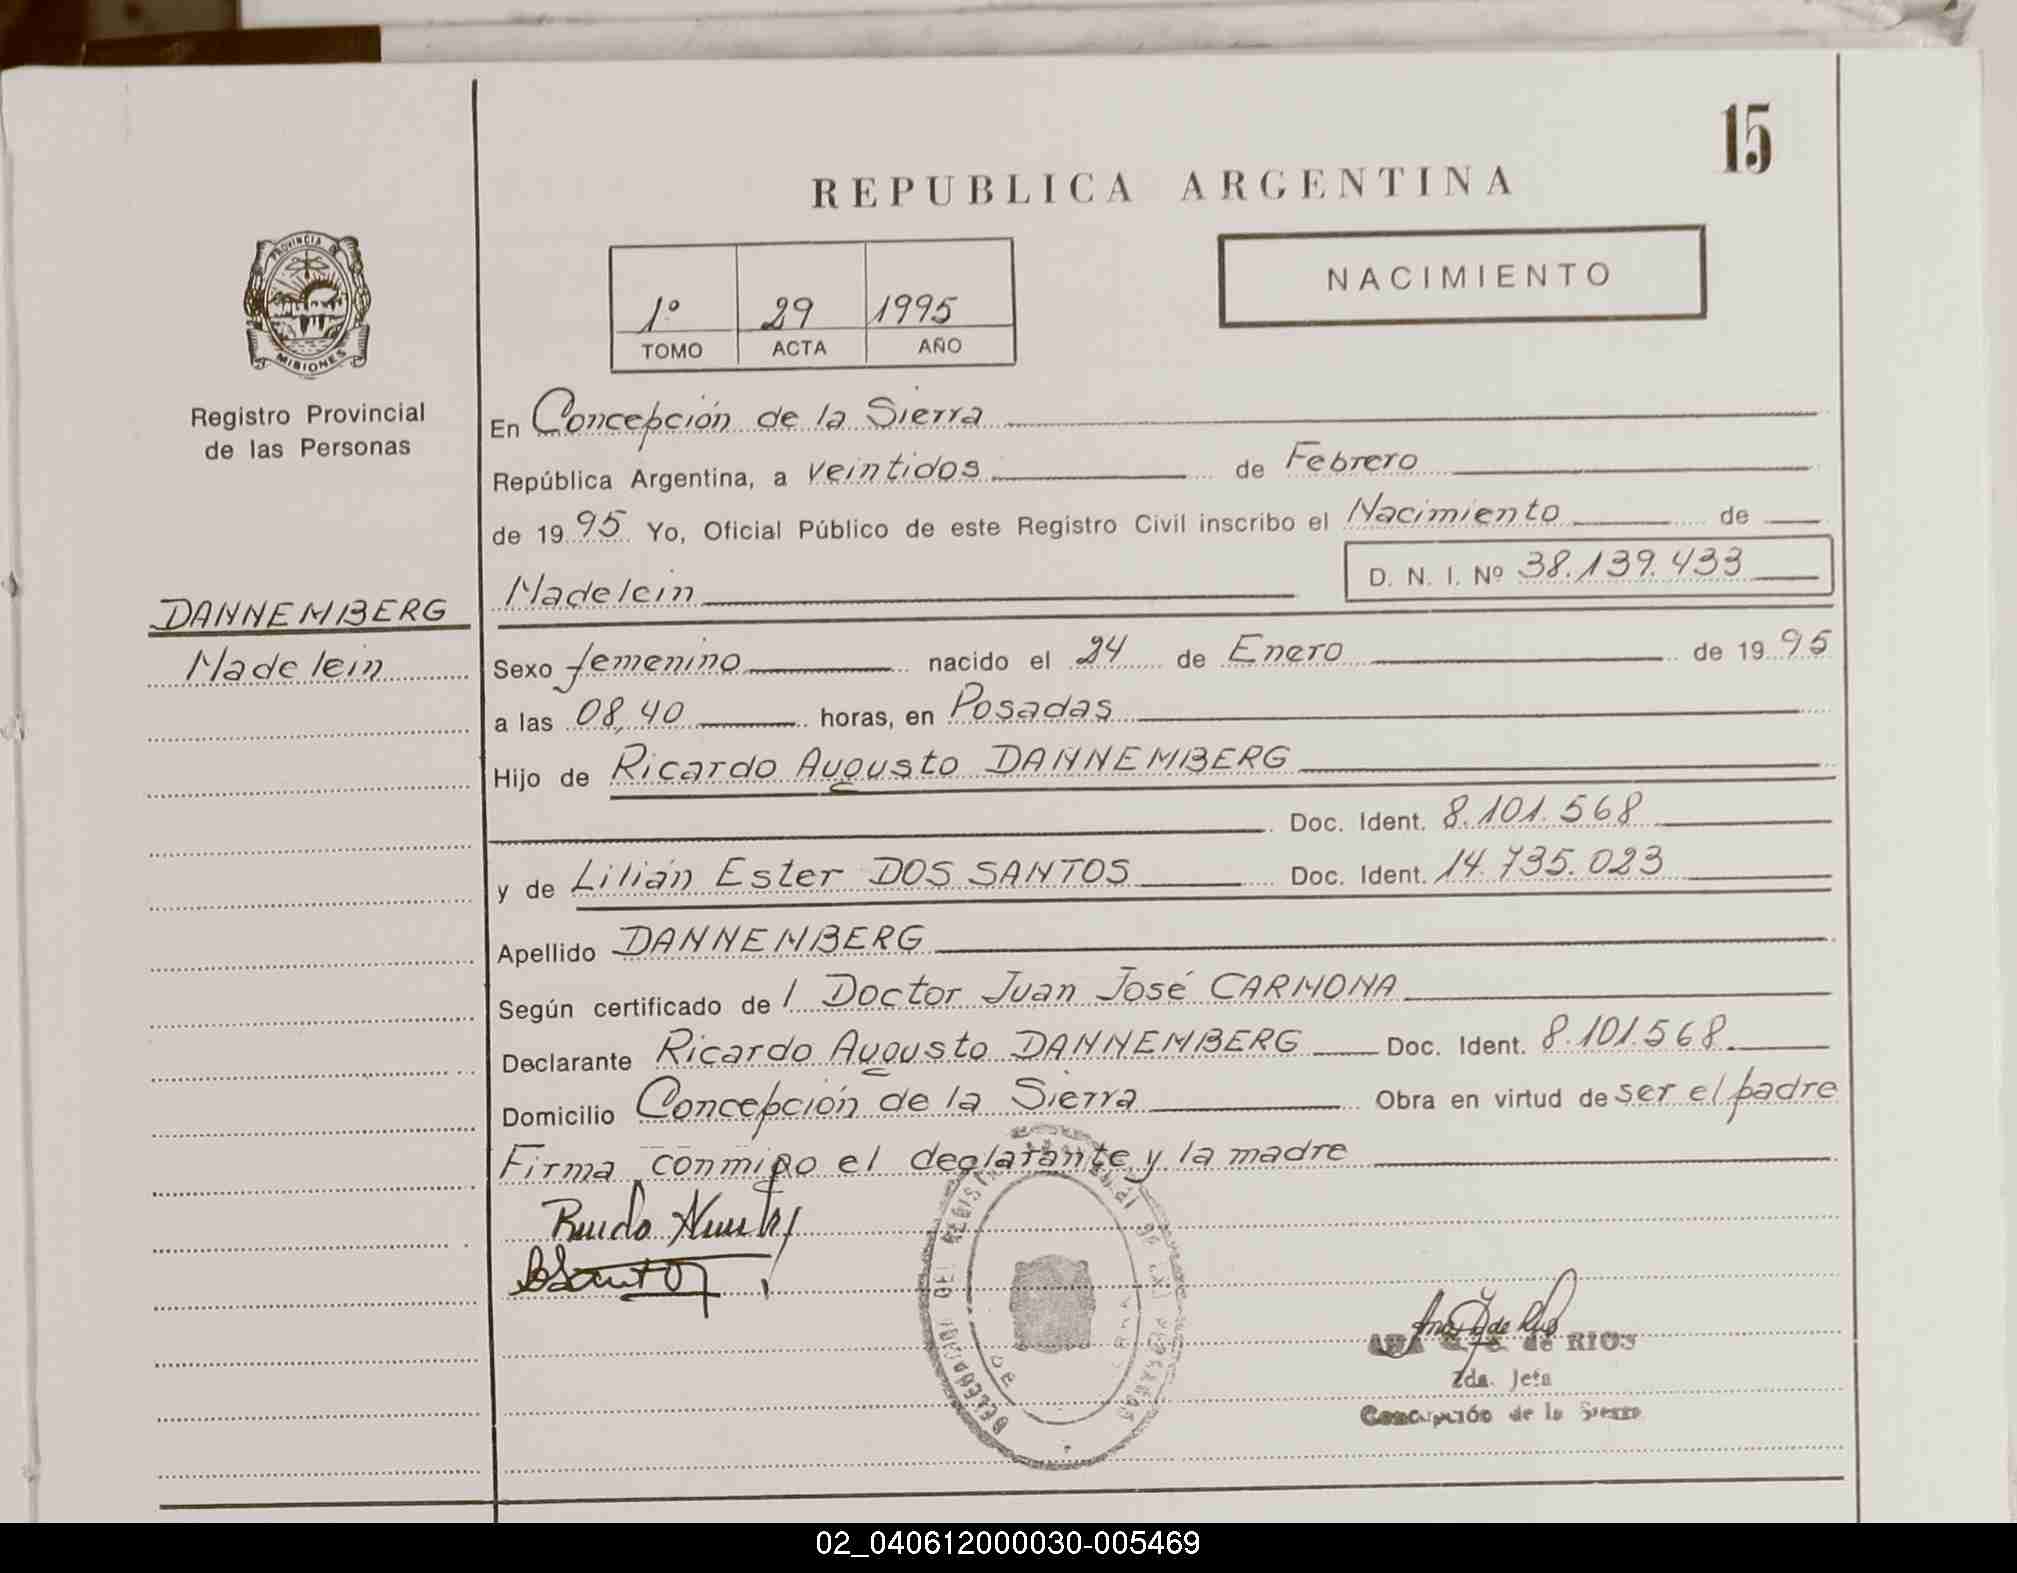 15
REPUBLICA ARGENTINA
PROVINCIA DE
MISIONES
NACIMIENTO
1º 29 1995
TOMO ACTA AÑO
Registro Provincial
de las Personas
En Concepción de la Sierra
República Argentina, a veintidos de Febrero
de 1995 Yo, Oficial Público de este Registro Civil inscribo el Nacimiento de
D. N. I. Nº 38.139.433
Madelein
DANNEMBERG
Madelein
Sexo femenino nacido el 24 de Enero de 1995
a las 08,40 horas, en Posadas
Hijo de Ricardo Augusto DANNEMBERG
Doc. Ident. 8.101.568
y de Lilián Ester DOS SANTOS Doc. Ident. 14.735.023
Apellido DANNEMBERG
Según certificado de l Doctor Juan José CARMONA
Declarante Ricardo Augusto DANNEMBERG Doc. Ident. 8.101.568
Domicilio Concepción de la Sierra Obra en virtud de ser el padre
Firma conmigo el declarante y la madre
ANA de RIOS
2da. Jefa
Concepción de la Sierra
02_040612000030-005469